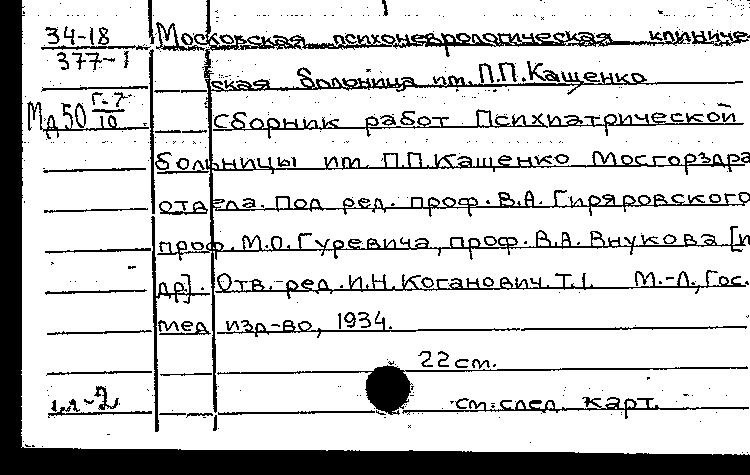 34-18 Московская психоневрологическая клиниче
377-1
ская больница им. П.П.Кащенко
Мд50 Г-7/10 Сборник работ Психиатрической
больницы им. П.П.Кащенко Мосгорздра
отдела. Под ред. проф. В.А. Гиляровского
проф. М.О. Гуревича, проф. В.А. Внукова [и
др]. Отв. ред. И.Н. Каганович. Т.1. М.-Л., Гос.
мед изд-во, 1934.
22 см.
см. след. карт.